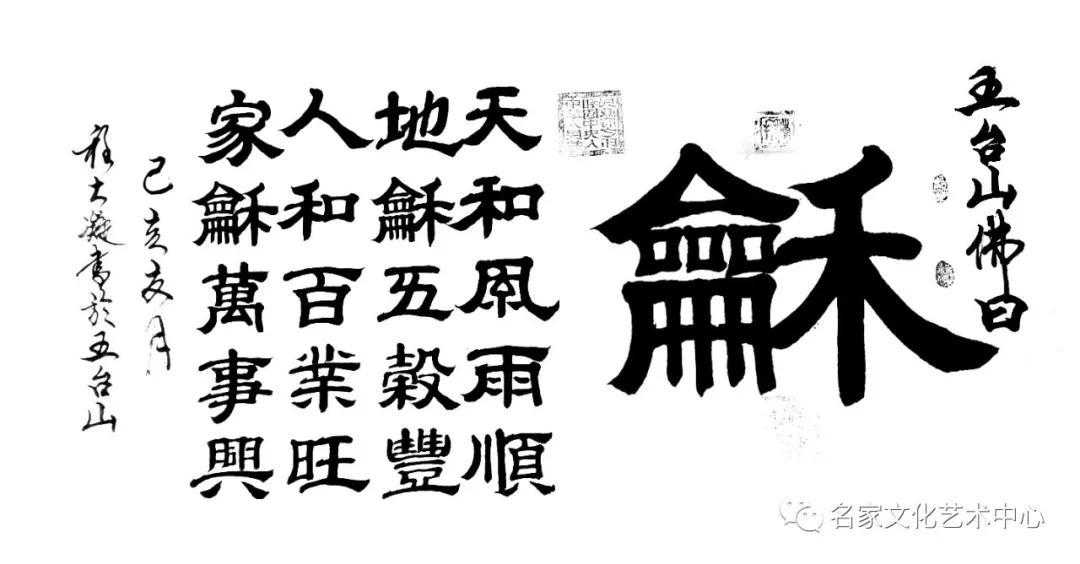 五台山佛曰
龢
天和風雨順
地龢五穀豐
人和百業旺
家龢萬事興
己亥友月
程大凝書於五台山
名家文化艺术中心